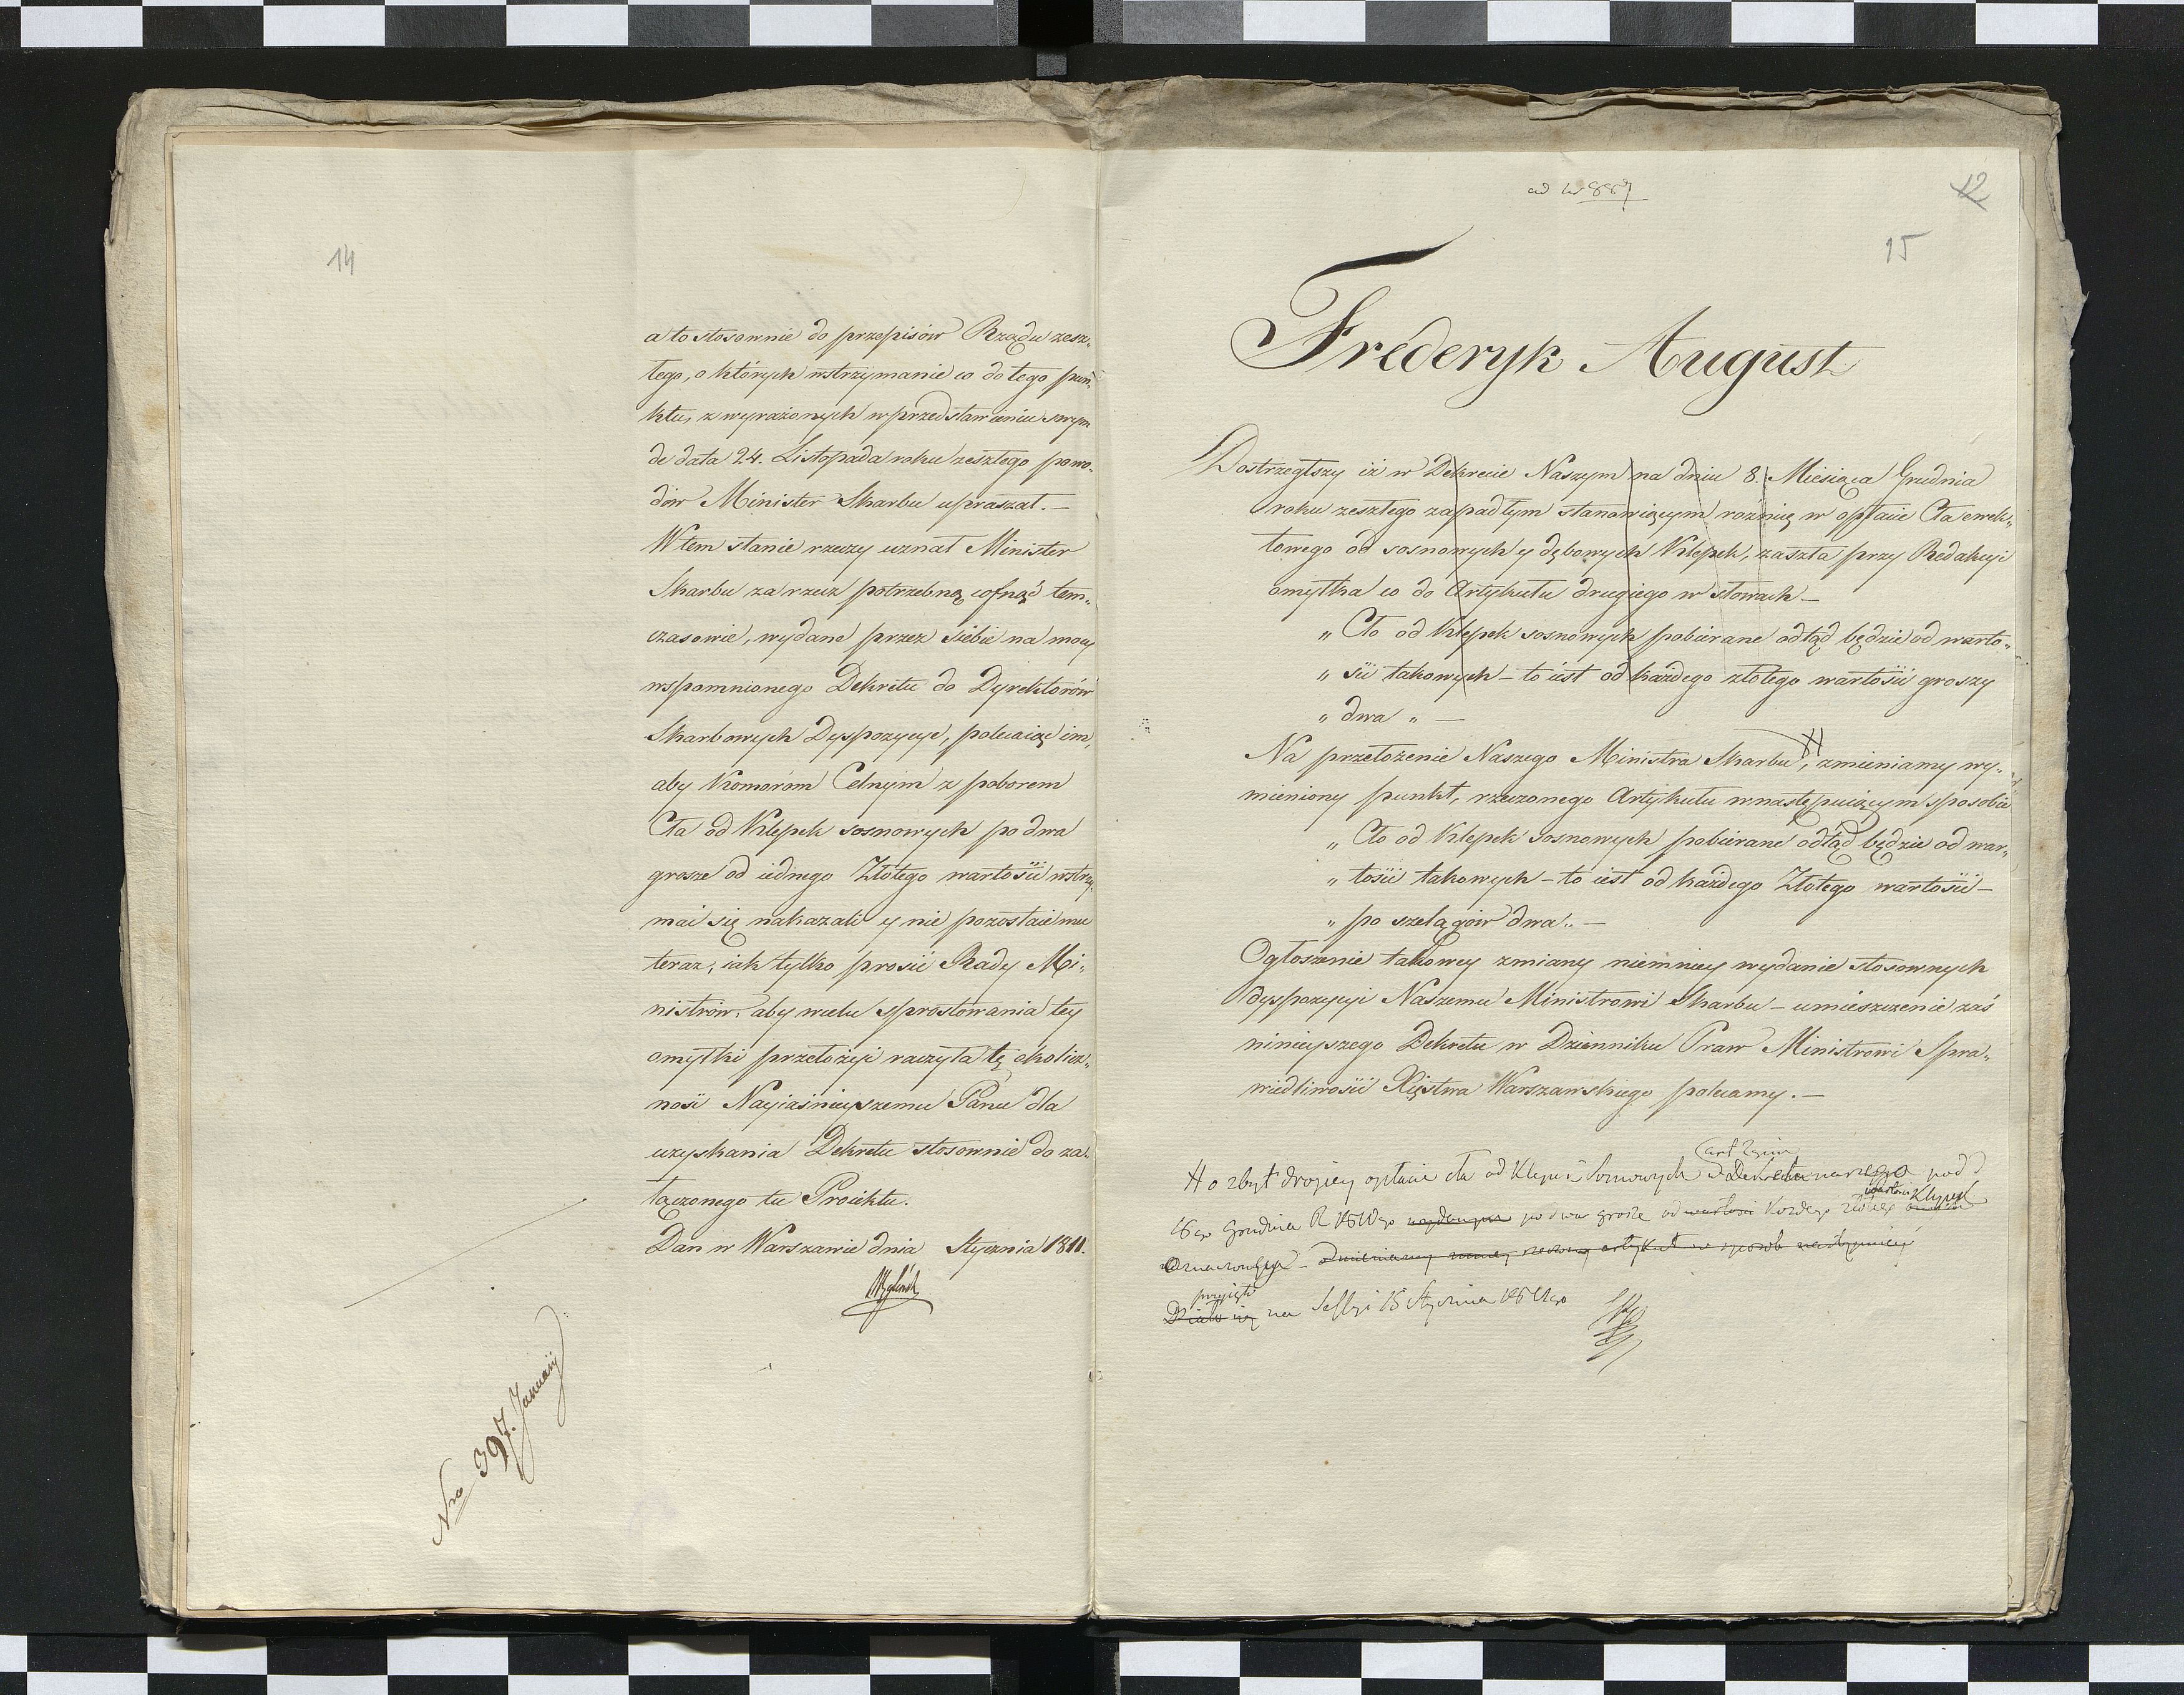 14
a to stosownie do przepisów Rządu zesz„
łego, o których wstrzymanie co do tego pun„
ktu, z wyrażonych w przedstawieniu swym
de data 24. Listopada roku zeszłego powo„
dów Minister Skarbu upraszał. —
W tem stanie rzeczy uznał Minister
Skarbu za rzecz potrzebną cofnąć tem„
czasowie, wydane przez siebie na mocy
wspomnionego Dekretu do Dyrektorów
Skarbowych Dyspozycye, polecaiąc im,
aby Komorom Celnym z poborem
Cła od Klepek sosnowych po dwa
grosze od iednego Złotego wartości wstrzy„
mać się nakazali y nie pozostaie mu
teraz, iak tylko prosić Rady Mi„
nistrów, aby w celu sprostowania tey
omyłki przełożyć raczyła tę okolicz„
ność Nayiaśnieyszemu Panu dla
uzyskania Dekretu stosownie do za„
łączonego tu Proiektu.
Dan w Warszawie dnia Stycznia 1811.
Nro 397. Januarij
12
15
Fréderyk August
Dostrzegłszy iż w Dekrecie Naszym na dniu 8. Miesiąca Grudnia
roku zeszłego zapadłym stanowiącym różnicę w opłacie Cła ewek„
towego od sosnowych y dębowych Klepek, zaszła przy Redakcyi
omyłka co do Artykułu drugiego w słowach —
„ Cło od Klepek sosnowych pobierane odtąd będzie od warto„
„ ści takowych — to iest od każdego złotego wartości groszy
„ dwa „ —
Na przełożenie Naszego Ministra Skarbu, zmieniamy wy„
mieniony punkt, rzeczonego Artykułu w następuiącym sposobie
„ Cło od Klepek sosnowych pobierane odtąd będzie od war„
„ tości takowych — to iest od każdego Złotego wartości —
„ po szelągów dwa „ —
Ogłoszenie takowey zmiany niemniey wydanie stosownych
dyspozycyi Naszemu Ministrowi Skarbu — umieszczenie zaś
ninieyszego Dekretu w Dzienniku Praw Ministrowi Spra„
wiedliwości Xięstwa Warszawskiego polecamy. —
o zbyt drogiey opłacie cła od Klepek Sosnowych Dekretu naszego pod d
Grudnia R po dwa grosze od wartości każdego złotego Klepek
przyięto
na Sessyi 15 Stycznia